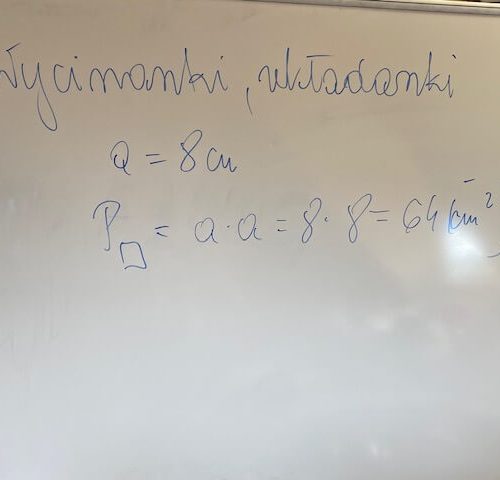 Wycinanki, układanki
a = 8 cm
P□ = a · a = 8 · 8 = 64 cm²